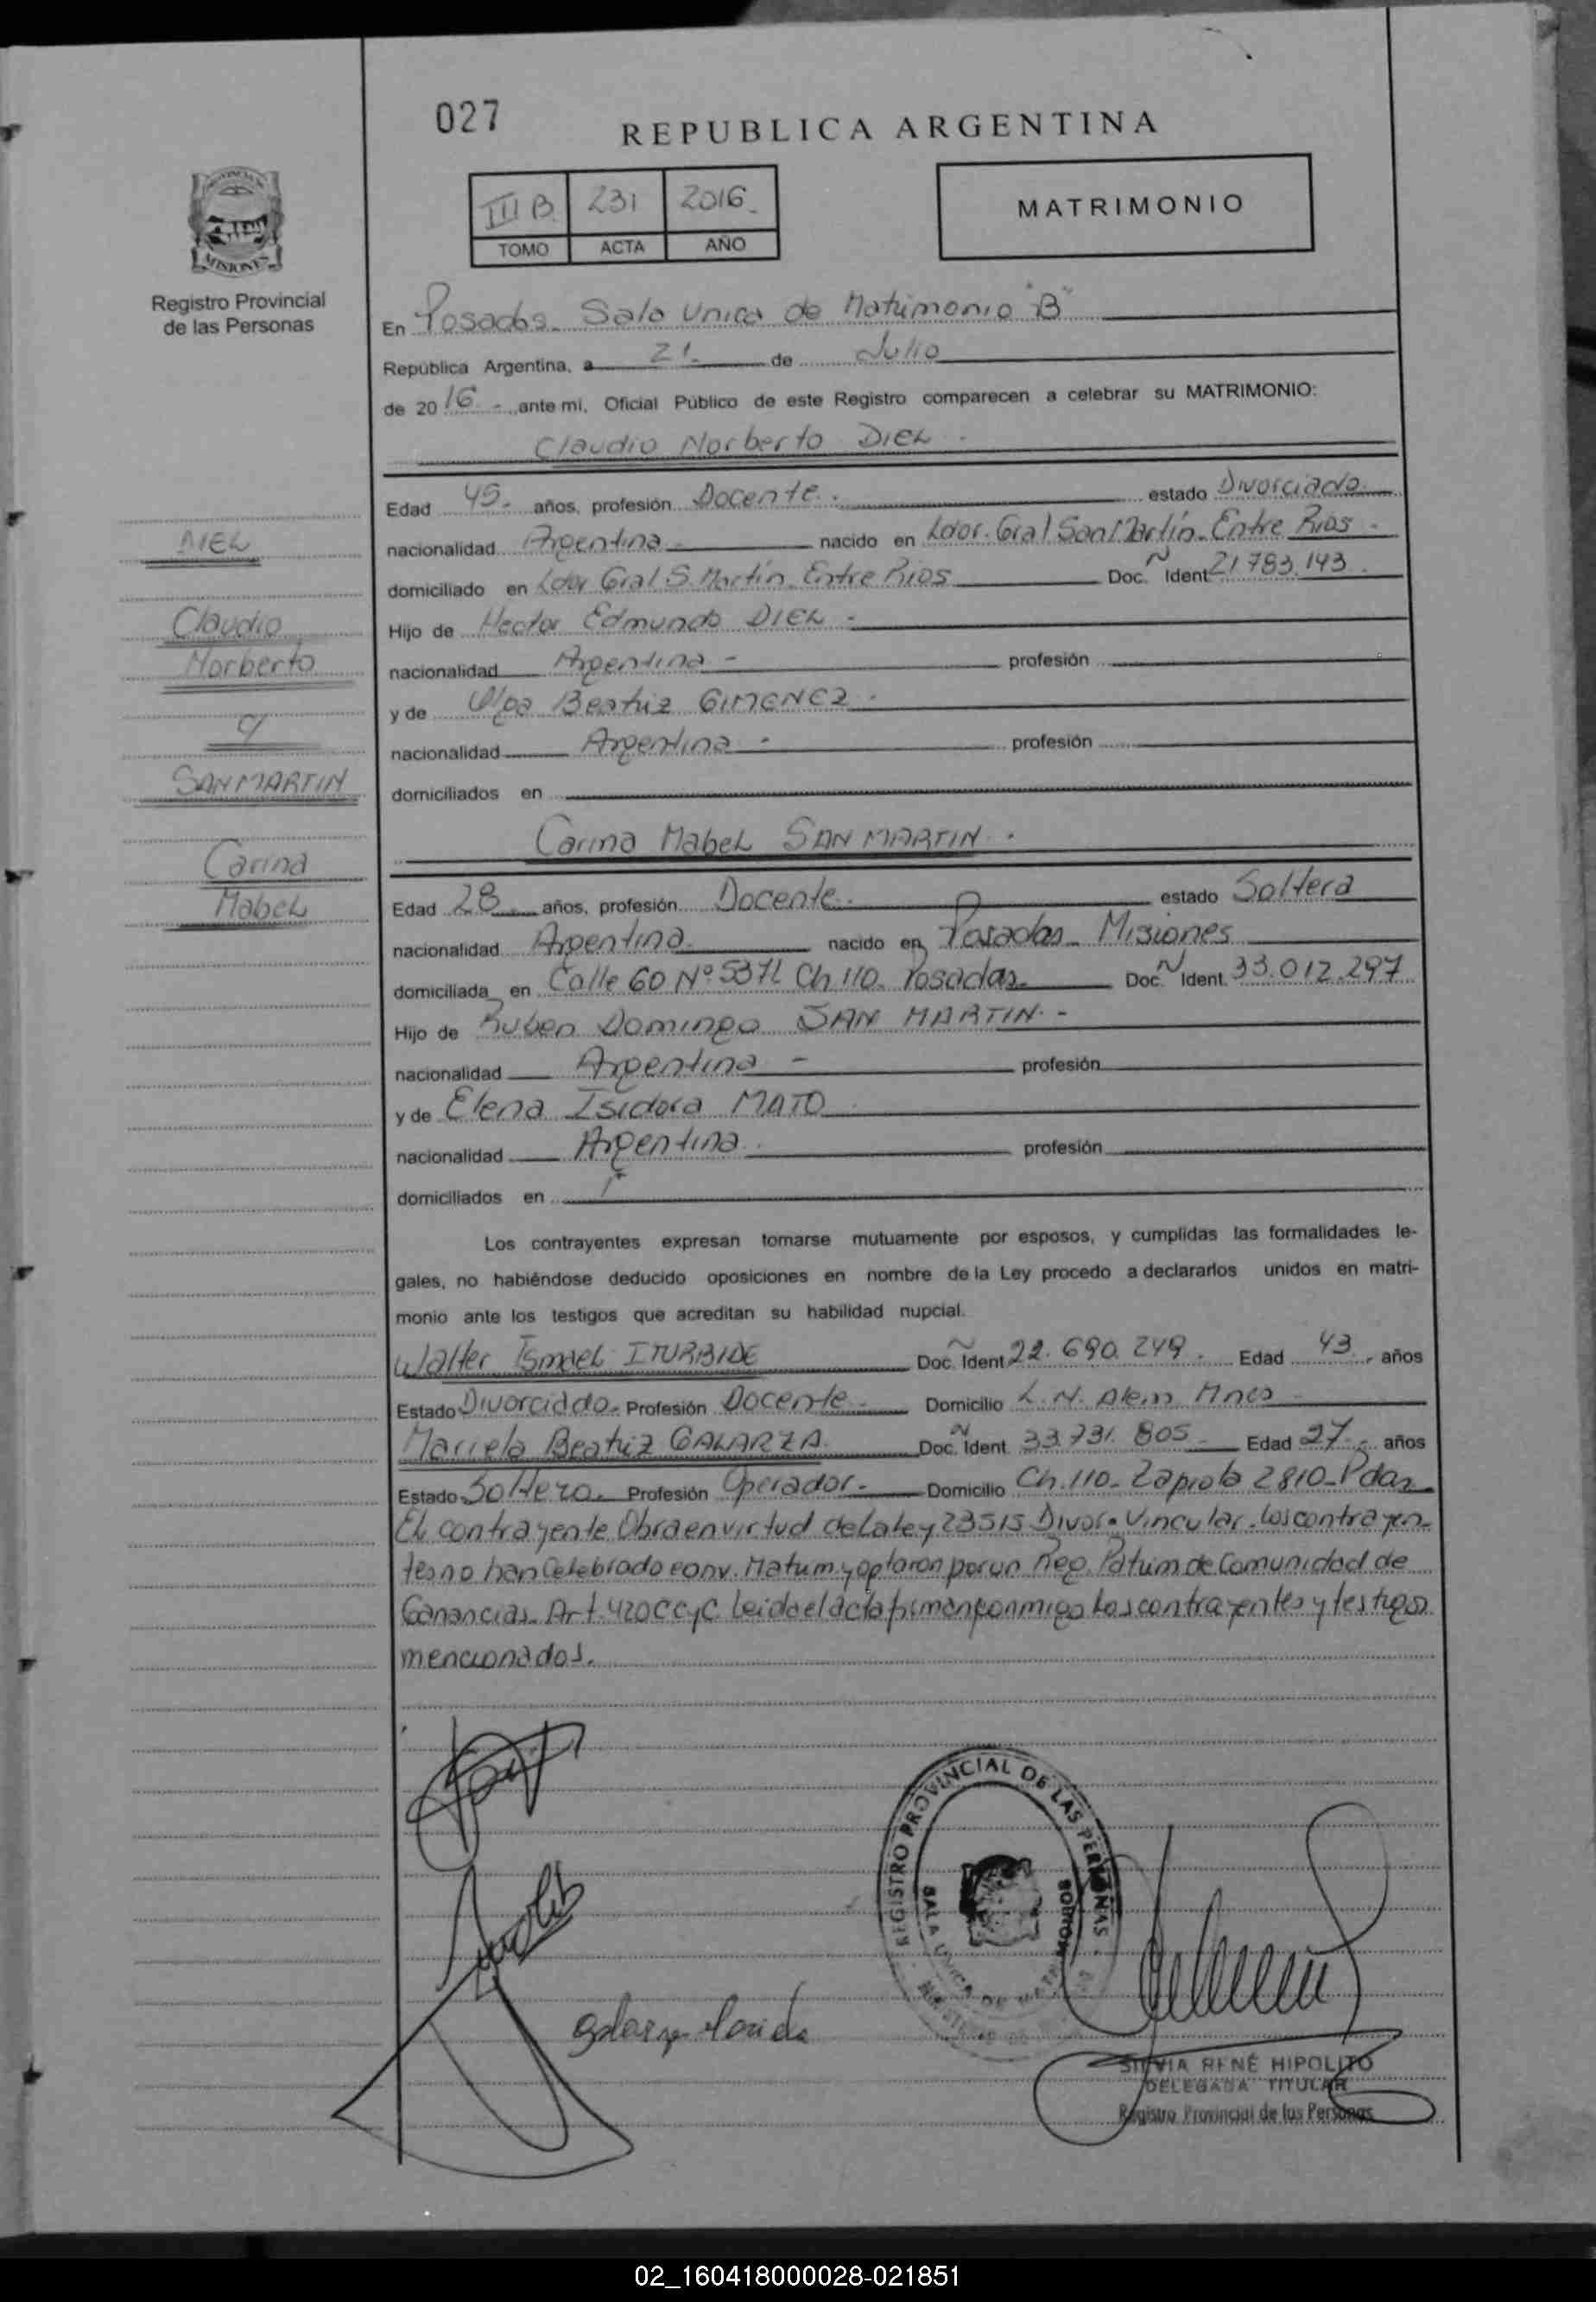 027
REPUBLICA ARGENTINA
III B 231 2016
TOMO ACTA AÑO
MATRIMONIO
PROVINCIA DE
MISIONES
Registro Provincial
de las Personas
En Posadas. Sala Unica de Matrimonio "B"
República Argentina, a 21 de Julio
de 2016 - ante mi, Oficial Público de este Registro comparecen a celebrar su MATRIMONIO:
Claudio Norberto DIEL.
Edad 45. años, profesión Docente. estado Divorciado
nacionalidad Argentina nacido en Ldor. Gral San Martín. Entre Rios.
domiciliado en Ldor Gral S. Martín. Entre Rios Doc. N Ident 21 783.143
Hijo de Hector Edmundo DIEL -
nacionalidad Argentina - profesión
y de Olga Beatriz GIMENEZ.
nacionalidad Argentina - profesión
domiciliados en
DIEL
Claudio
Norberto
c/
SAN MARTIN
Carina
Mabel
Carina Mabel SAN MARTIN.
Edad 28 años, profesión Docente. estado Soltera
nacionalidad Argentina nacido en Posadas - Misiones
domiciliada en Calle 60 Nº 5371 Ch 110. Posadas. Doc. N Ident. 33.012.297
Hijo de Ruben Domingo SAN MARTIN. -
nacionalidad Argentina - profesión
y de Elena Isidora MATO
nacionalidad Argentina. profesión
domiciliados en
Los contrayentes expresan tomarse mutuamente por esposos, y cumplidas las formalidades le-
gales, no habiéndose deducido oposiciones en nombre de la Ley procedo a declararlos unidos en matri-
monio ante los testigos que acreditan su habilidad nupcial.
Walter Ismael ITURBIDE Doc. Ident 22.690.249. Edad 43 años
Estado Divorciado. Profesión Docente. Domicilio L. N. Alem Mnes
Mariela Beatriz GALARZA. Doc. N Ident. 33.731.805 Edad 27 - años
Estado Soltero. Profesión Operador. Domicilio Ch. 110 - Zapiola 2810 - Pdas
El contrayente Obra en virtud de La Ley 23515 Divor. Vincular. Los contrayen-
tes no han Celebrado conv. Matrim y optaron por un Reg. Patrim de Comunidad de
Ganancias. Art. 420 CCyC. Leida el acta firman conmigo Los contrayentes y testigos
mencionados.
REGISTRO PROVINCIAL DE LAS PERSONAS
SALA UNICA DE
SILVIA RENÉ HIPOLITO
DELEGADA TITULAR
Registro Provincial de las Personas
02_160418000028-021851